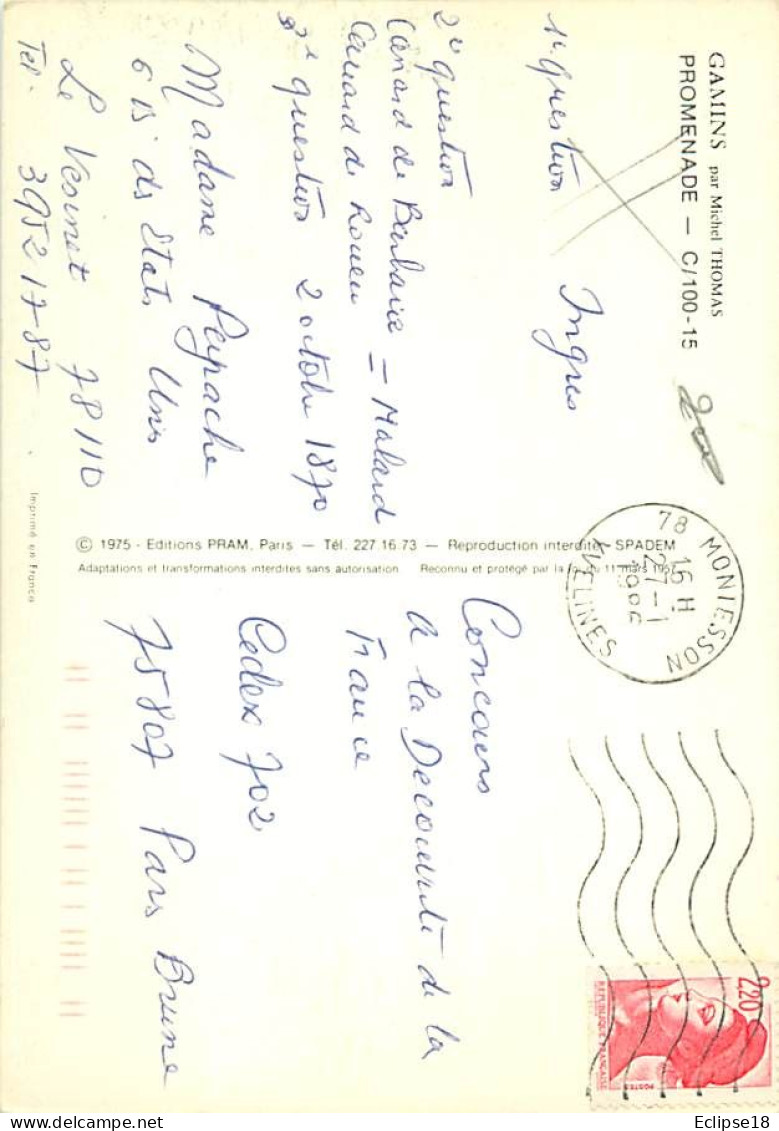 GAMINS par Michel THOMAS
PROMENADE — C/100-15
1e question Ingres
2e question
Canard de Barbarie – Malard
Canard de Rouen
3e question 2 octobre 1870
Madame Perpache
6 B ds Etats Unis
Le Vesinet 78110
Tel. 3952 17-87
Imprimé en France
© 1975 - Editions PRAM, Paris — Tél. 227.16.73 — Reproduction interdite - SPADEM
Adaptations et transformations interdites sans autorisation Reconnu et protégé par la loi du 11 mars 1957
78 MONTESSON
16 H
27-1
1986
YVELINES
Concours
a la Decouverte de la
France
Cedex 702
75807 Paris Brune
2,20
REPUBLIQUE FRANCAISE
POSTES
Eclipse18